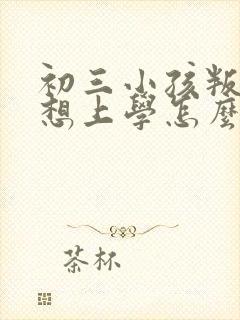 初三小孩叛
想上學怎麼
茶杯